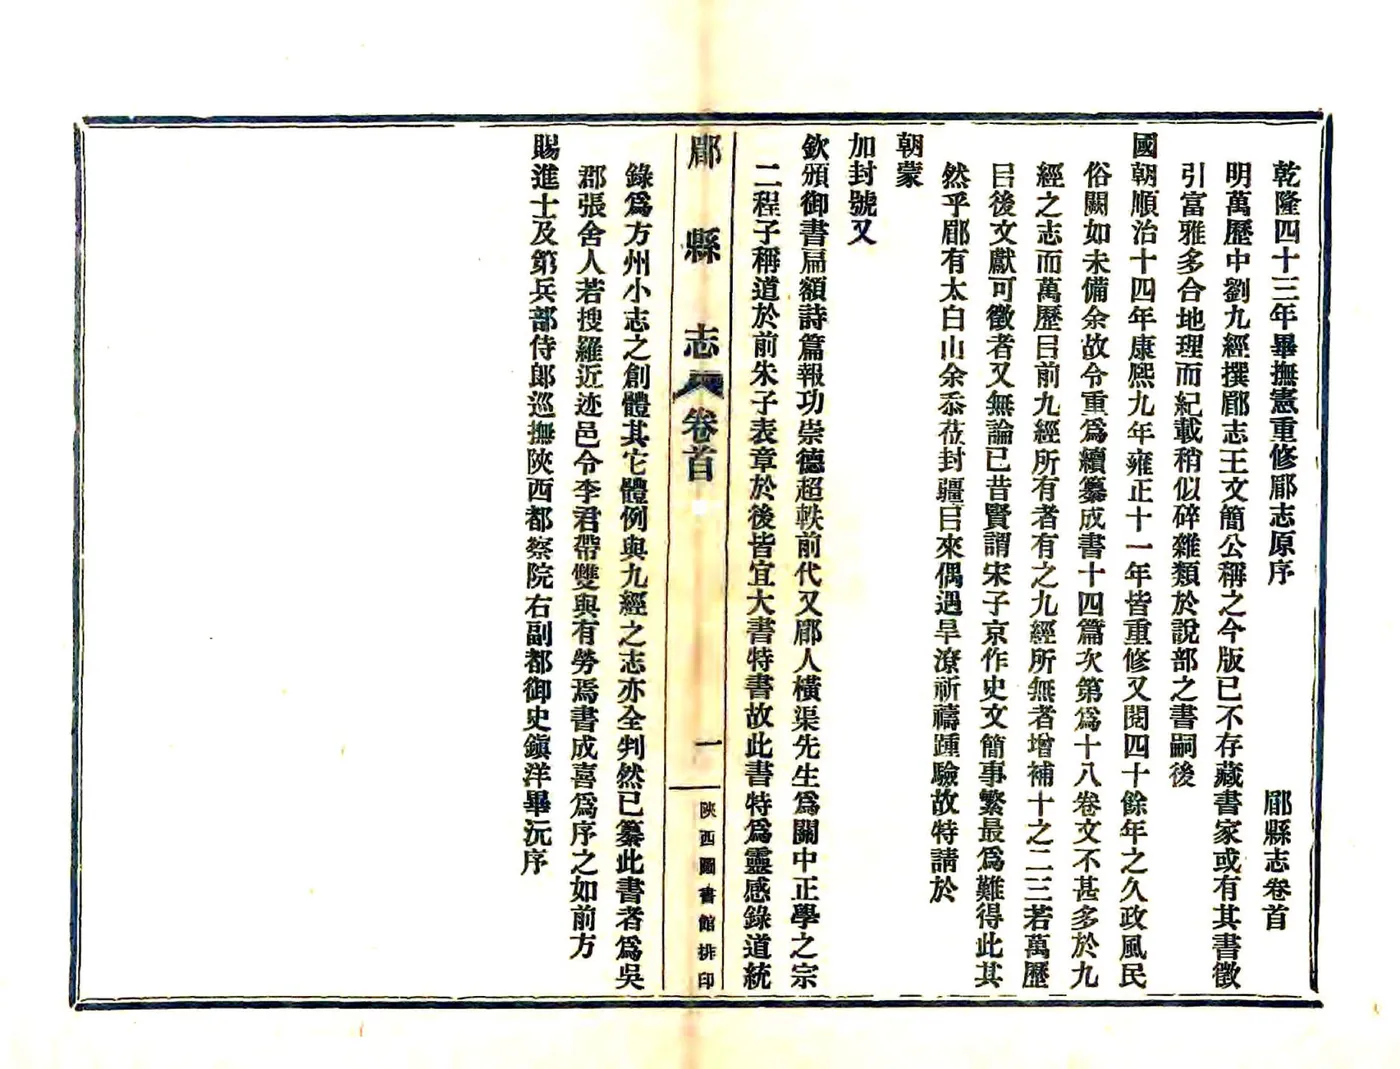 乾隆四十三年畢撫憲重修郿志原序
郿縣志卷首
明萬歷中劉九經撰郿志王文簡公稱之今版已不存藏書家或有其書徵
引富雅多合地理而紀載稍似碎雜類於說部之書嗣後
國朝順治十四年康熙九年雍正十一年皆重修又閱四十餘年之久政風民
俗闕如未備余故令重爲續纂成書十四篇次第爲十八卷文不甚多於九
經之志而萬歷㠯前九經所有者有之九經所無者增補十之二三若萬歷
㠯後文獻可徵者又無論已昔賢謂宋子京作史文簡事繁最爲難得此其
然乎郿有太白山余忝莅封疆㠯來偶遇旱潦祈禱踵驗故特請於
朝蒙
加封號又
欽頒御書扁額詩篇報功崇德超軼前代又郿人橫渠先生爲關中正學之宗
二程子稱道於前朱子表章於後皆宜大書特書故此書特爲靈感錄道統
郿縣志
卷首
一
陝西圖書館排印
錄爲方州小志之創體其它體例與九經之志亦全判然已纂此書者爲吳
郡張舍人若搜羅近迹邑令李君帶雙與有勞焉書成喜爲序之如前方
賜進士及第兵部侍郎巡撫陝西都察院右副都御史鎭洋畢沅序